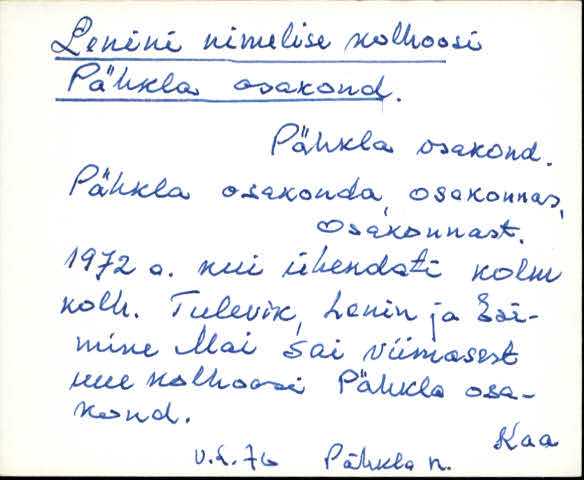 Lenini nimelise kolhoosi
Pähkla osakond.
Pähkla osakond.
Pähkla osakonda, osakonnas,
osakonnast.
1972 a. kui ühendati kolm
kolh. Tulevik, Lenin ja Esi-
mine Mai sai viimasest
uue kolhoosi Pähkla osa-
kond.
Kaa
V.L.76 Pähkla n.